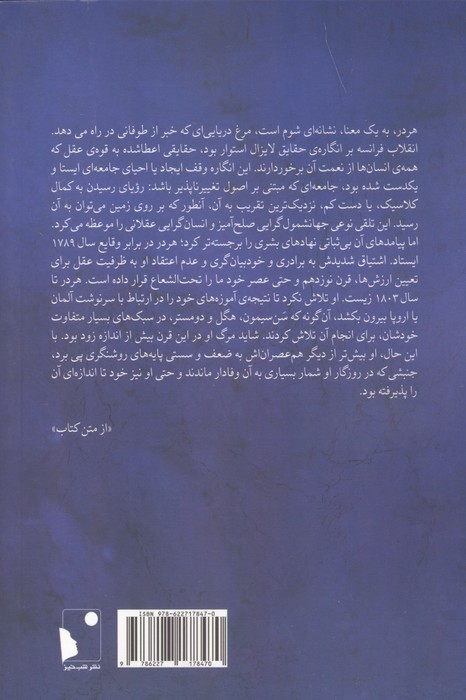 هردر، به یک معنا، نشانه‌ای شوم است، مرغ دریایی‌ای که خبر از طوفانی در راه می دهد.
انقلاب فرانسه بر انگاره‌ی حقایق لایزال استوار بود، حقایقی اعطاشده به قوه‌ی عقل که
همه‌ی انسان‌ها از نعمت آن برخوردارند. این انگاره وقف ایجاد یا احیای جامعه‌ای ایستا و
یکدست شده بود، جامعه‌ای که مبتنی بر اصول تغییرناپذیر باشد: رؤیای رسیدن به کمال
کلاسیک، یا دست کم، نزدیک‌ترین تقریب به آن، آنطور که بر روی زمین می‌توان به آن
رسید. این تلقی نوعی جهانشمول‌گرایی صلح‌آمیز و انسان‌گرایی عقلانی را موعظه می‌کرد.
اما پیامدهای آن بی‌ثباتی نهادهای بشری را برجسته‌تر کرد: هردر در برابر وقایع سال ۱۷۸۹
ایستاد. اشتیاق شدیدش به برادری و خودبیان‌گری و عدم اعتقاد او به ظرفیت عقل برای
تعیین ارزش‌ها، قرن نوزدهم و حتی عصر خود ما را تحت‌الشعاع قرار داده است. هردر تا
سال ۱۸۰۳ زیست. او تلاش نکرد تا نتیجه‌ی آموزه‌های خود را در ارتباط با سرنوشت آلمان
یا اروپا بیرون بکشد، آن‌گونه که سَن‌سیمون، هگل و دومستر، در سبک‌های بسیار متفاوت
خودشان، برای انجام آن تلاش کردند. شاید مرگ او در این قرن بیش از اندازه زود بود. با
این حال، او بیش‌تر از دیگر هم‌عصران‌اش به ضعف و سستی پایه‌های روشنگری پی برد،
جنبشی که در روزگار او شمار بسیاری به آن وفادار ماندند و حتی او نیز خود تا اندازه‌ای آن
را پذیرفته بود.
«از متن کتاب»
ISBN 978-622717847-0
9 786227 178470